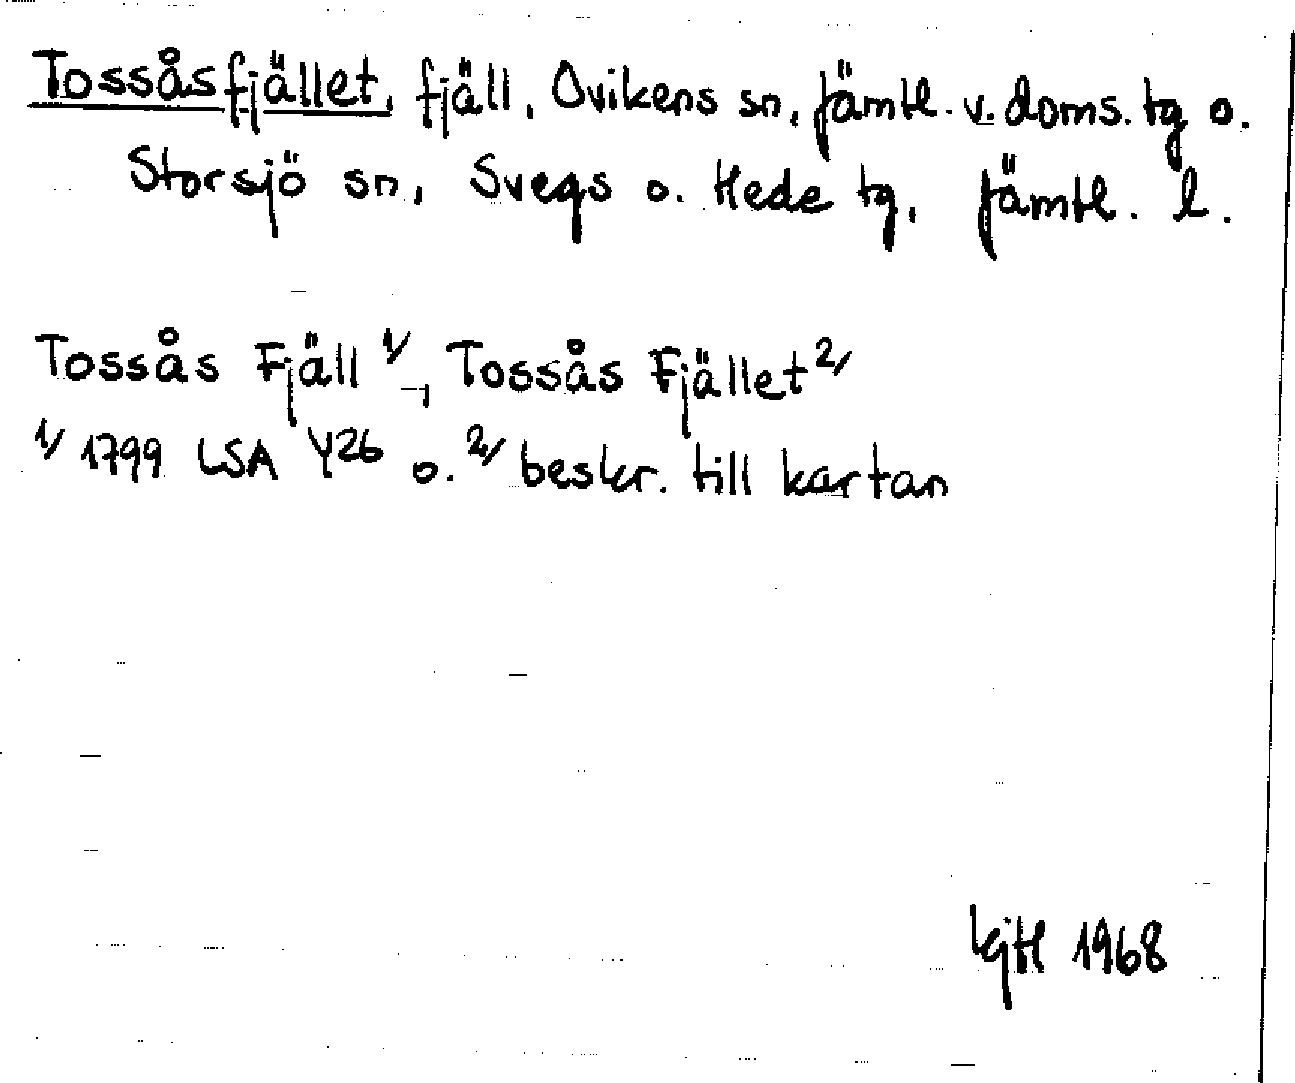 Tossåsfjället, fjäll, Ovikens sn, Jämtl. v. doms. tg o.
Storsjö sn, Svegs o. Hede tg, Jämtl. l.
Tossås Fjäll 1/, Tossås Fjället 2/
1/ 1799 LSA Y26 o. 2/ beskr. till kartan
1968